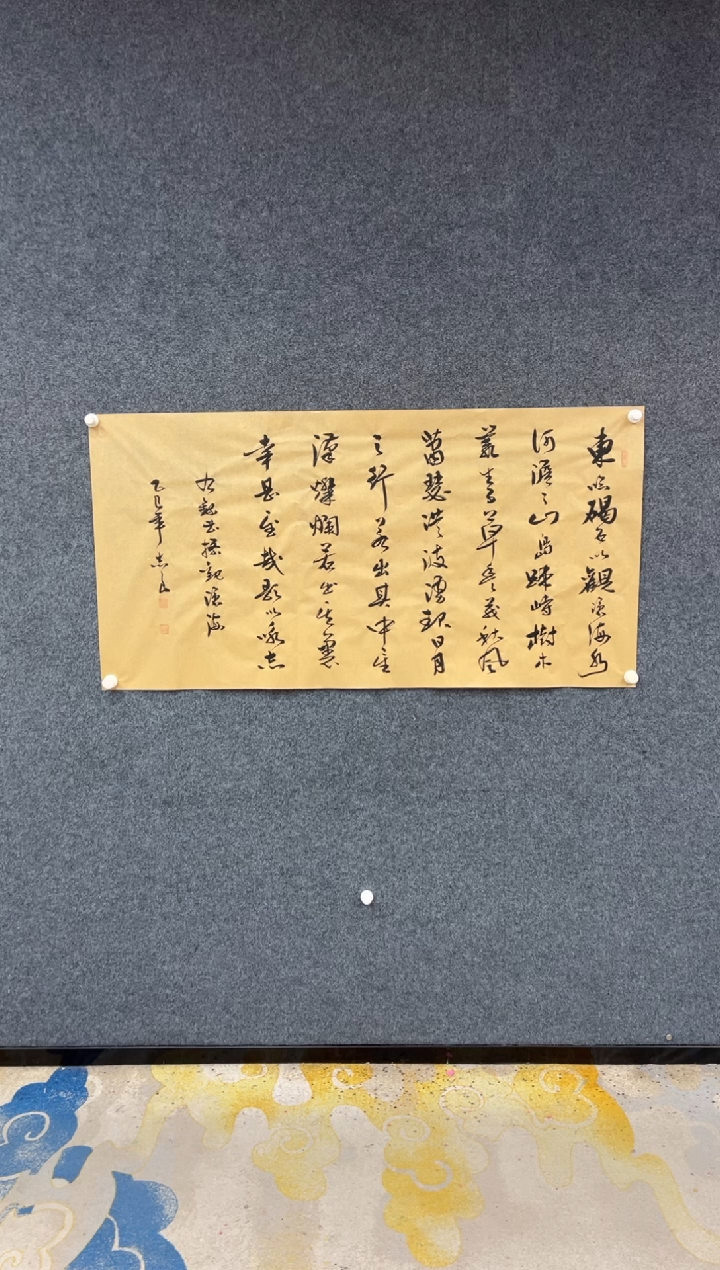 東臨碣石以觀滄海水
何澹々山島竦峙樹木
叢生百草丰茂秋風
蕭瑟洪波湧起日月
之行若出其中星
漢燦爛若出其裏
幸甚至哉歌以咏志
曹操觀滄海
乙巳年志